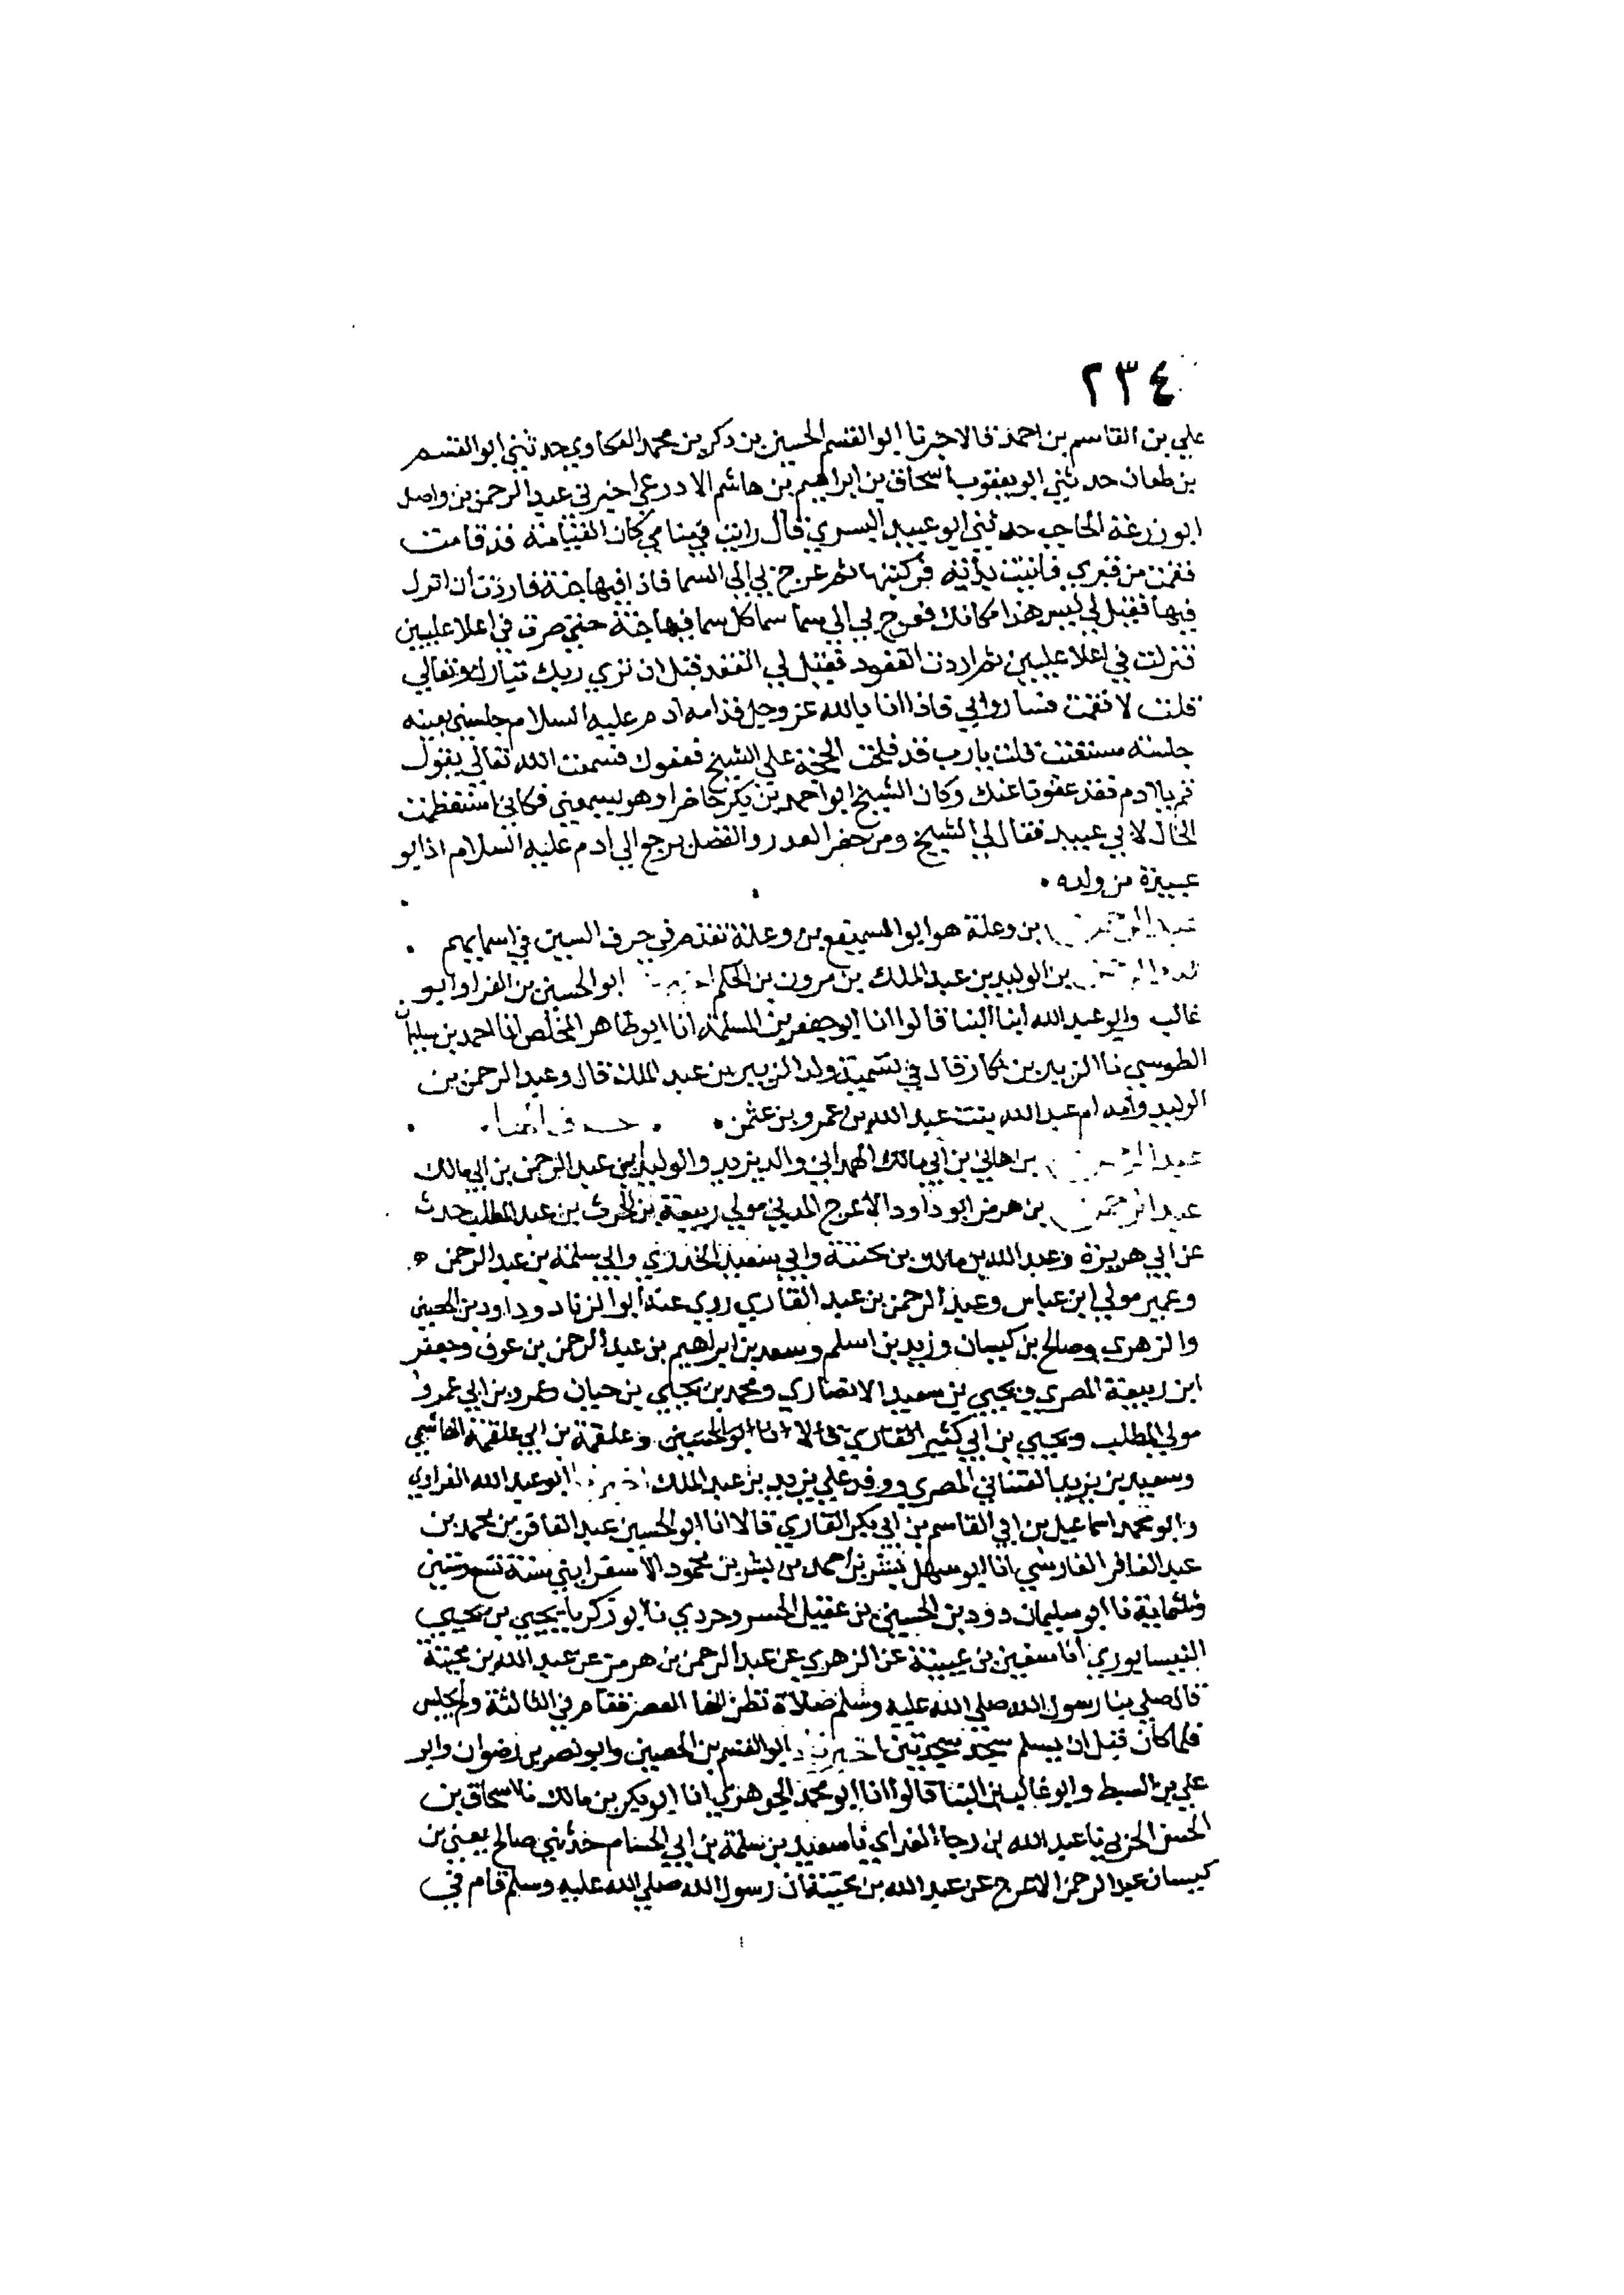 ٢٣٤
علي بن القاسم بن احمد قالا اخبرنا ابو القسم الحسين بن ذكر بن محمد العكاوي حدثني ابو القسم
بن طعان حدثني ابو يعقوب اسحاق بن ابراهيم بن هاشم الادرعي اخبرني عبد الرحمن بن واصل
ابو زرعة الحاجب حدثني ابو عبيد البسري قال رايت في منامي كان القيامة قد قامت
فقمت من قبري فاتيت بدابة فركبتها ثم عرج بي الى السما فاذا فيها جنة فاردت ان انزل
فيها فقيل لي ليس هذا مكانك فعرج بي الي سما سما كل سما فيها جنة حتى صرت في اعلا عليين
فنزلت في اعلا عليين ثم اردت القعود فقيل لي اتقعد قبل ان تري ربك تبارك وتعالي
قلت لا فقمت فساروا بي فاذا انا بالله عز وجل قدامه ادم عليه السلام جلسني يمينه
جلسة مستقنت قلت يارب قد فلحت الحجة علي الشيخ فعفوك فسمعت الله تعالي يقول
قم يا ادم فقد عفونا عنك وكان الشيخ ابو احمد بن بكر حاضرا وهو يسمعني فكاني استفظعت
الحال لابي عبيد فقال لي الشيخ ومن حفر العدر والفضل يرجع الي ادم عليه السلام اذ ابو
عبيدة من ولده
عبد الرحمن بن وعلة هو ابو السميفع بن وعلة تقدم في حرف السين في اسمايهم
عبد الرحمن بن الوليد بن عبد الملك بن مرون بن الحكم اخبرنا ابو الحسين بن الفرا وابو
غالب وابو عبد الله ابنا البنا قالوا انا ابو جعفر بن المسلمة انا ابو طاهر المخلص انا احمد بن سليمان
الطوسي نا الزبير بن بكار قال في تسمية ولد الزبير بن عبد الملك قال وعبد الرحمن بن
الوليد وامه ام عبد الله بنت عبد الله بن عمرو بن عثمن
عبد الرحمن بن هاني بن ابي مالك الهمداني والد يزيد والوليد بن عبد الرحمن بن ابي مالك
عبد الرحمن بن هرمز ابو داود الاعرج المدني مولي ربيعة بن الحرث بن عبد المطلب حدث
عن ابي هريرة وعبد الله بن مالك بن بحينة وابي سعيد الخدري وابي سلمة بن عبد الرحمن
وعمير مولي ابن عباس وعبد الرحمن بن عبد القاري روي عنه ابو الزناد وداود بن الحصين
والزهري وصالح بن كيسان وزيد بن اسلم وسعد بن ابراهيم بن عبد الرحمن بن عوف وجعفر
ابن ربيعة المصري ويحيي بن سعيد الانصاري ومحمد بن يحيي بن حيان وعمرو بن ابي عمرو
مولي المطلب ويحيي بن ابي كثير القاري قالا انا ابو الحسين وعلقمة بن ابي علقمة الهاشمي
وسعيد بن يزيد القتباني المصري ووفد علي يزيد بن عبد الملك اخبرنا ابو عبد الله الفراوي
وابو محمد اسماعيل بن ابي القاسم بن ابي بكر القاري قالا انا ابو الحسين عبد الغافر بن محمد بن
عبد الغافر الفارسي انا ابو سهل بشر بن احمد بن بشر بن محمود الاسفرايني سنة تسع وستين
وثلثماية نا ابو سليمان داود بن الحسين بن عقيل الخسروجردي نا ابو زكريا يحيي بن يحيي
النيسابوري انا سفين بن عيينة عن الزهري عن عبد الرحمن بن هرمز عن عبد الله بن بحينة
قال صلي بنا رسول الله صلي الله عليه وسلم صلاة نظن انها العصر فقام في الثالثة ولم يجلس
فلما كان قبل ان يسلم سجد سجدتين اخبرنا ابو القسم بن الحصين وابو نصر بن رضوان وابو
علي بن السبط وابو غالب بن البنا قالوا انا ابو محمد الجوهري انا ابو بكر بن مالك نا اسحاق بن
الحسن الحربي نا عبد الله بن رجا الغداي نا سعيد بن سلمة بن ابي الحسام حدثني صالح يعني بن
كيسان عبد الرحمن الاعرج عن عبد الله بن بحينة ان رسول الله صلي الله عليه وسلم قام في